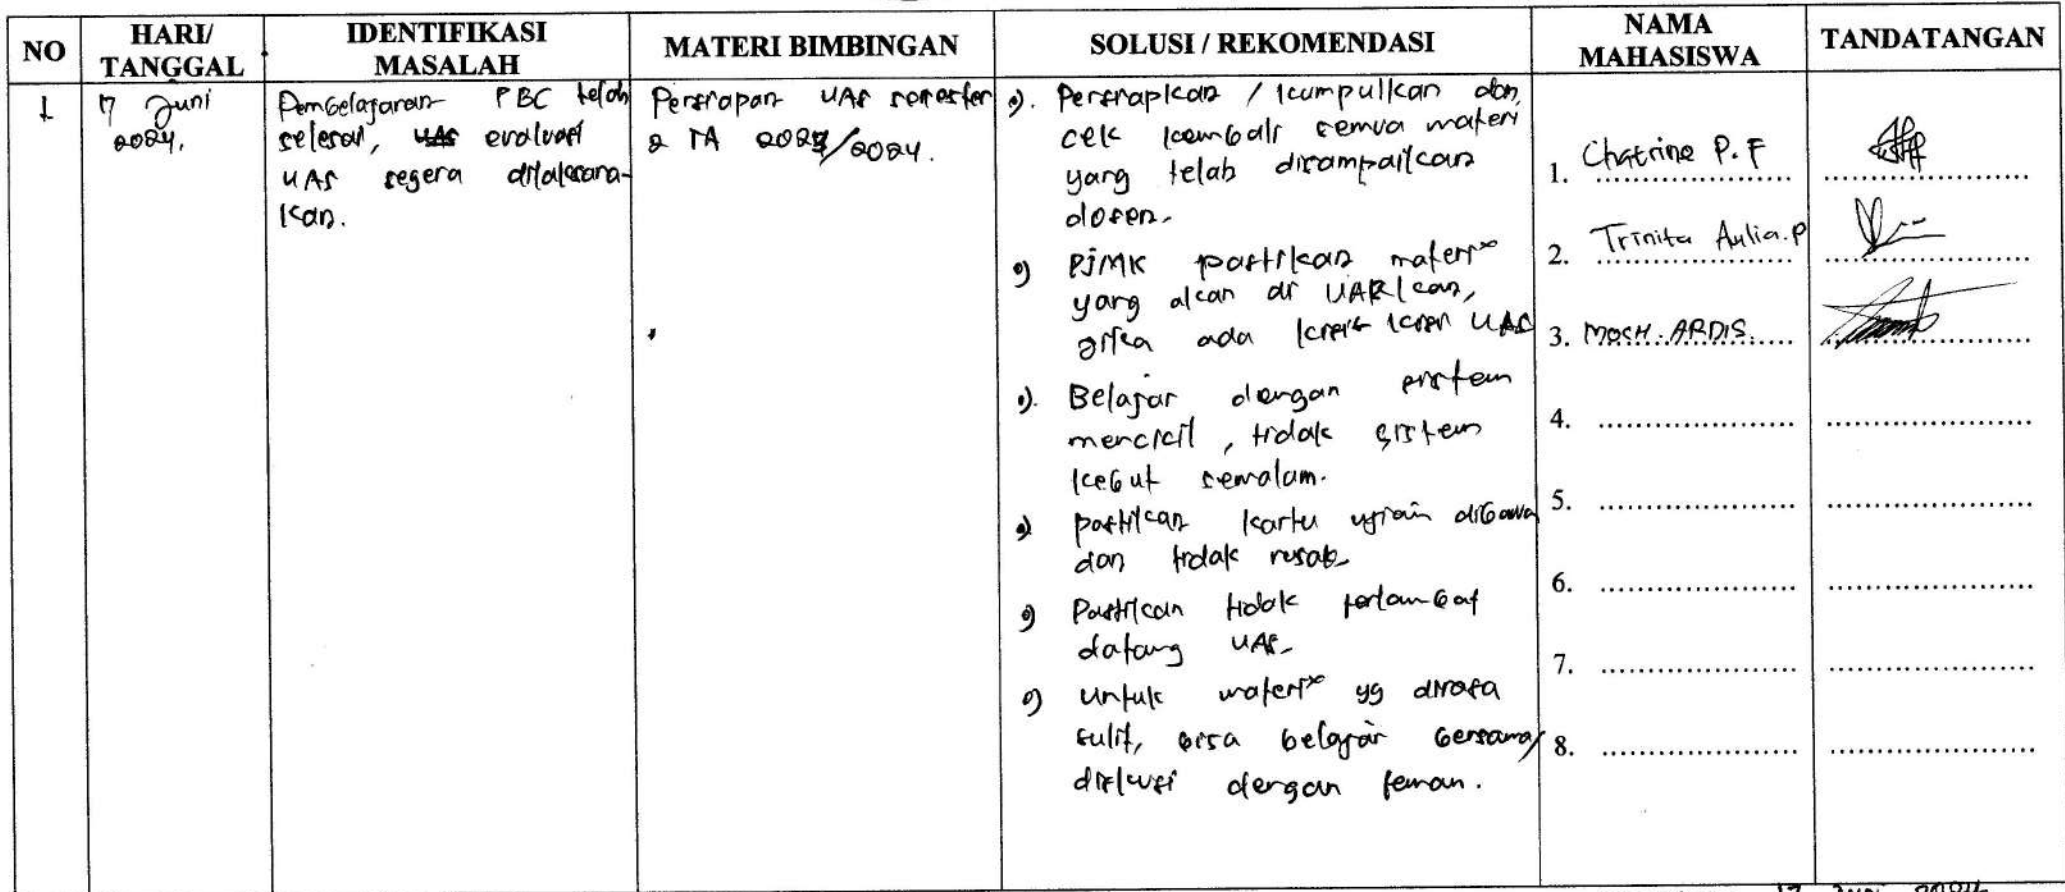 NO
HARI/
TANGGAL
IDENTIFIKASI
MASALAH
MATERI BIMBINGAN
SOLUSI / REKOMENDASI
NAMA
MAHASISWA
TANDATANGAN
1
17 Juni
2024.
Pembelajaran PBC telah
selesai, UAS evaluasi
UAS segera dilaksana-
kan.
Persiapan UAS semester
2 TA 2023/2024.
•). Persiapkan / kumpulkan dan
cek kembali semua materi
yang telah disampaikan
dosen.
•) PJMK pastikan materi²
yang akan di UASkan,
jika ada kisi² kisi UAS
•). Belajar dengan sistem
mencicil, tidak sistem
kebut semalam.
•) pastikan kartu ujian dibawa
dan tidak rusak.
•) Pastikan tidak terlambat
datang UAS.
•) untuk materi² yg dirasa
sulit, bisa belajar bersama/
diskusi dengan teman.
1. Chatrine P. F
2. Trinita Aulia. P
3. MOCH. ARDIS.
4.
5.
6.
7.
8.
17 Juni 2024